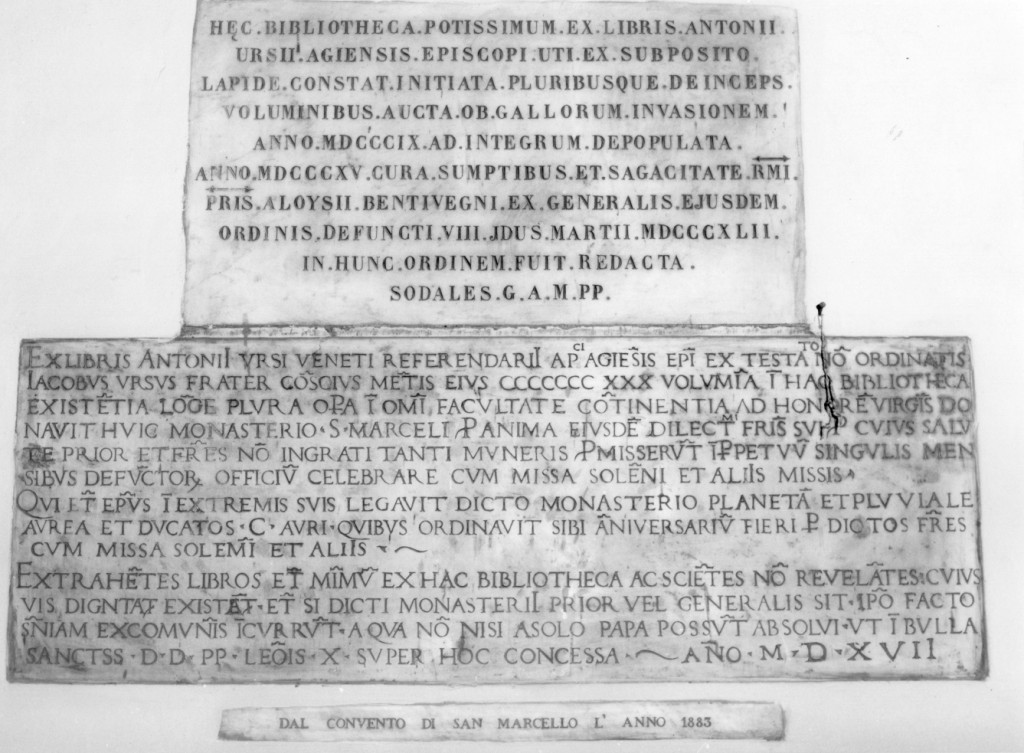 HĘC.BIBLIOTHECA.POTISSIMUM.EX.LIBRIS.ANTONII.
URSII.AGIENSIS.EPISCOPI.UTI.EX.SUBPOSITO.
LAPIDE.CONSTAT.INITIATA.PLURIBUSQUE.DEINCEPS.
VOLUMINIBUS.AUCTA.OB.GALLORUM.INVASIONEM.
ANNO.MDCCCIX.AD.INTEGRUM.DEPOPULATA.
ANNO.MDCCCXV.CURA.SUMPTIBUS.ET.SAGACITATE.RMI.
PRIS.ALOYSII.BENTIVEGNI.EX.GENERALIS.EJUSDEM.
ORDINIS.DEFUNCTI.VIII.JDUS.MARTII.MDCCCXLII.
IN.HUNC.ORDINEM.FUIT.REDACTA.
SODALES.G.A.M.PP.
EX LIBRIS ANTONII VRSI VENETI REFERENDARII APCI AGIEŜIS EPĪ EX TESTATO NŌ ORDINATIS
IACOBVS VRSVS FRATER CŌSCIVS MĒTIS EIVS CCCCCCC XXX VOLVMĪA Ī HAC BIBLIOTHECA
EXISTĒTIA LŌGE PLVRA OPA Ī OMĪ FACVLTATE CŌTINENTIA AD HONORĒ VIRGIS DO
NAVIT HVIC MONASTERIO·S·MARCELI ꝒANIMA EIVSDĒ DILECTMI FRIS SVI CVIVS SALV
TE PRIOR ET FRĒS NŌ INGRATI TANTI MVNERIS ꝒMISSERVT ĪꝒPETVV̄ SINGVLIS MEN
SIBVS DEFVCTOꝜ OFFICIV̄ CELEBRARE CVM MISSA SOLĒNI ET ALIIS MISSIS
QVI ET̄ EPV̄S Ī EXTREMIS SVIS LEGAVIT DICTO MONASTERIO PLANETĀ ET PLVVIALE
AVREA ET DVCATOS·C·AVRI·QVIBVS ORDINAVIT SIBI ĀNIVERSARIV̄ FIERI Ꝓ DICTOS FRĒS
CVM MISSA SOLEMĪ ET ALIIS
EXTRAHĒTES LIBROS ET MĪMV̄ EX HAC BIBLIOTHECA AC SCIĒTES NŌ REVELĀTES:CVIVS
VIS DIGNTAT EXISTĀT·ET̄ SI DICTI MONASTERII PRIOR VEL GENERALIS SIT·IPŌ FACTO
SN̄IAM EXCOMVNĪS ĪCVRRV̄T·A QVA NŌ NISI A SOLO PAPA POSSV̄T ABSOLVI·VT Ī BVLLA
SANCTSS·D·D·PP·LEŌIS·X·SVPER HOC CONCESSA·AÑO·M·D·XVII
DAL CONVENTO DI SAN MARCELLO L' ANNO 1883